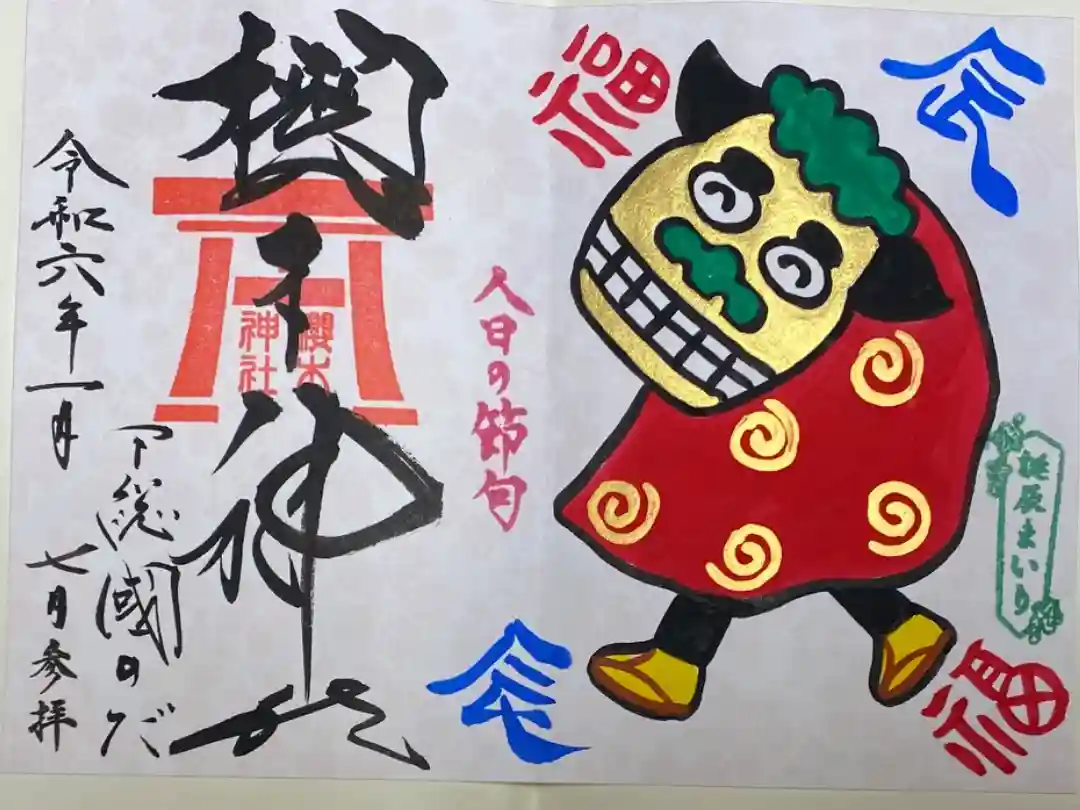 辰
福
誕辰まいり
福
人日の節句
辰
櫻木神社
櫻木
神社
下総國のだ
令和六年一月七日参拝